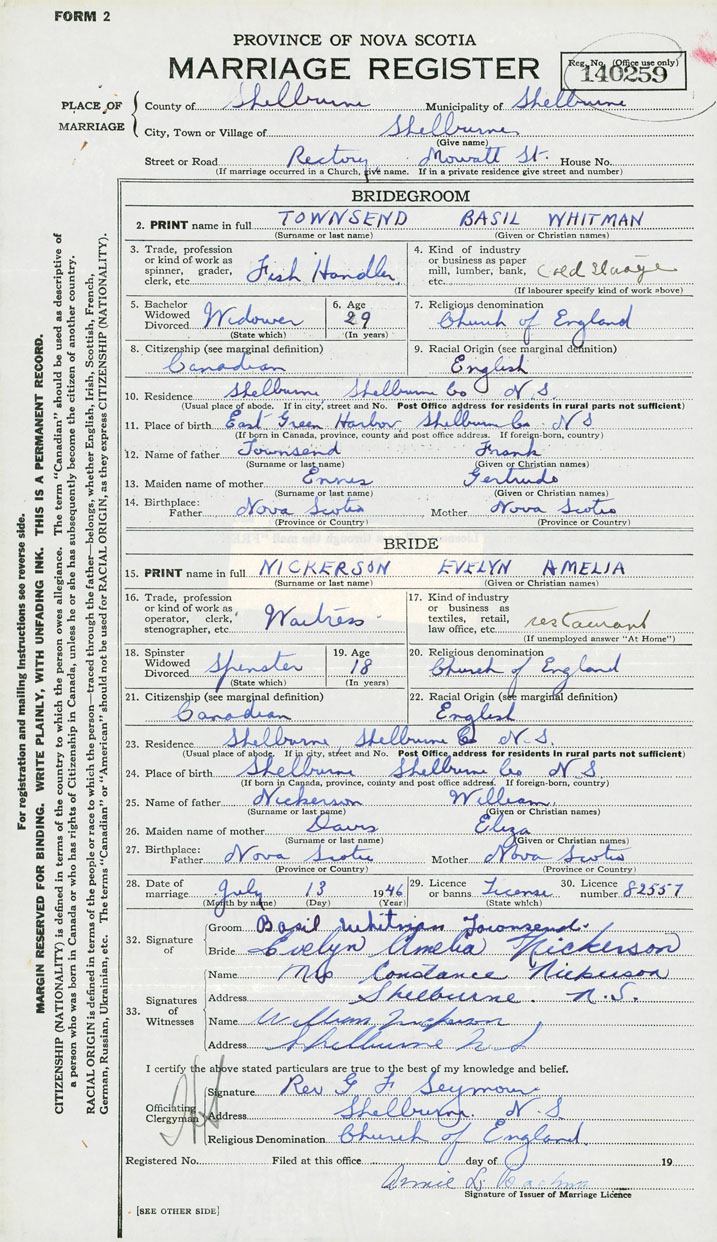 FORM 2
PROVINCE OF NOVA SCOTIA
MARRIAGE REGISTER
Reg. No. (Office use only)
140259
PLACE OF MARRIAGE
County of Shelburne Municipality of Shelburne
City, Town or Village of Shelburne
(Give name)
Street or Road Rectory, Mowatt St. House No.
(If marriage occurred in a Church, give name. If in a private residence give street and number)
BRIDEGROOM
2. PRINT name in full TOWNSEND BASIL WHITMAN
(Surname or last name) (Given or Christian names)
3. Trade, profession or kind of work as spinner, grader, clerk, etc. Fish Handler
4. Kind of industry or business as paper mill, lumber, bank, etc. Cold Storage
(If labourer specify kind of work above)
5. Bachelor Widowed Divorced Widower
(State which)
6. Age 29
(In years)
7. Religious denomination
Church of England
8. Citizenship (see marginal definition)
Canadian
9. Racial Origin (see marginal definition)
English
10. Residence Shelburne Shelburne Co N.S.
(Usual place of abode. If in city, street and No. Post Office address for residents in rural parts not sufficient)
11. Place of birth East Green Harbor, Shelburne Co. N S
(If born in Canada, province, county and post office address. If foreign-born, country)
12. Name of father Townsend Frank
(Surname or last name) (Given or Christian names)
13. Maiden name of mother Ennes Gertrude
(Surname or last name) (Given or Christian names)
14. Birthplace: Father Nova Scotia Mother Nova Scotia
(Province or Country) (Province or Country)
BRIDE
15. PRINT name in full NICKERSON EVELYN AMELIA
(Surname or last name) (Given or Christian names)
16. Trade, profession or kind of work as operator, clerk, stenographer, etc. Waitress
17. Kind of industry or business as textiles, retail, law office, etc. restaurant
(If unemployed answer "At Home")
18. Spinster Widowed Divorced Spinster
(State which)
19. Age 18
(In years)
20. Religious denomination
Church of England
21. Citizenship (see marginal definition)
Canadian
22. Racial Origin (see marginal definition)
English
23. Residence Shelburne Shelburne Co N.S.
(Usual place of abode. If in city, street and No. Post Office address for residents in rural parts not sufficient)
24. Place of birth Shelburne Shelburne Co N.S.
(If born in Canada, province, county and post office address. If foreign-born, country)
25. Name of father Nickerson William
(Surname or last name) (Given or Christian names)
26. Maiden name of mother Davis Eliza
(Surname or last name) (Given or Christian names)
27. Birthplace: Father Nova Scotia Mother Nova Scotia
(Province or Country) (Province or Country)
28. Date of marriage July 13 1946
(Month by name) (Day) (Year)
29. Licence or banns License
(State which)
30. Licence number 82557
32. Signature of
Groom Basil Whitman Townsend
Bride Evelyn Amelia Nickerson
33. Signatures of Witnesses
Name Mrs Constance Nickerson
Address Shelburne. N.S.
Name William Nickerson
Address Shelburne N S
I certify the above stated particulars are true to the best of my knowledge and belief.
Officiating Clergyman
Signature Rev G F Seymour
Address Shelburne. N.S.
Religious Denomination Church of England.
Registered No. Filed at this office day of 19
Annie L.
Signature of Issuer of Marriage Licence
[SEE OTHER SIDE]
For registration and mailing instructions see reverse side.
MARGIN RESERVED FOR BINDING. WRITE PLAINLY, WITH UNFADING INK. THIS IS A PERMANENT RECORD.
CITIZENSHIP (NATIONALITY) is defined in terms of the country to which the person owes allegiance. The term "Canadian" should be used as descriptive of
a person who was born in Canada or who has rights of Citizenship in Canada, unless he or she has subsequently become the citizen of another country.
RACIAL ORIGIN is defined in terms of the people or race to which the person—traced through the father—belongs, whether English, Irish, Scottish, French,
German, Russian, Ukrainian, etc. The terms "Canadian" or "American" should not be used for RACIAL ORIGIN, as they express CITIZENSHIP (NATIONALITY).